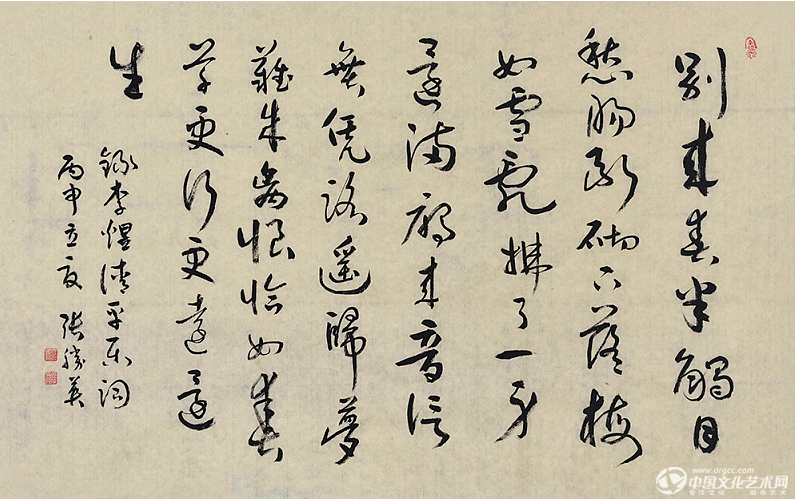 别来春半觸目
愁肠断砌下落梅
如雪乱拂了一身
還满雁来音信
無凭路遥歸夢
難成离恨恰如春
草更行更遠還
生
錄李煜清平乐词
丙申立夏 張勝英
www.orgcc.com
中国文化艺术网